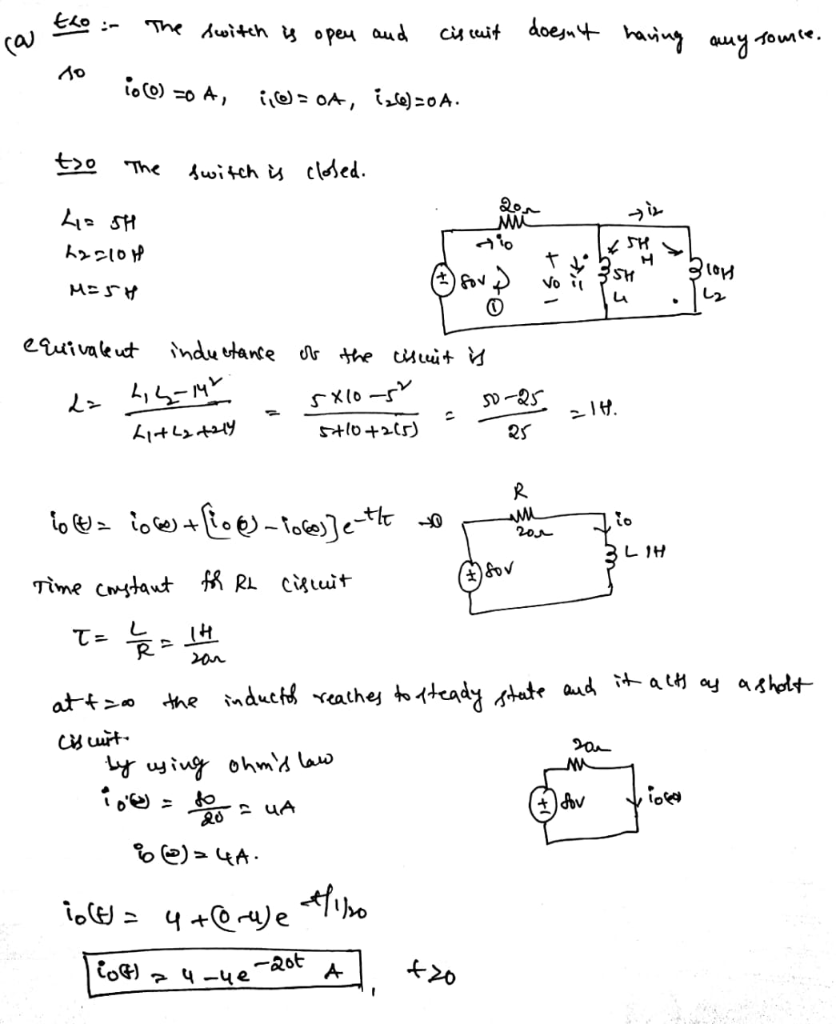 (a) t<0 :- The switch is open and circuit doesn't having any source.
so
i₀(0) = 0 A, i₁(0) = 0A, i₂(0) = 0A.
t>0 The switch is closed.
L₁ = 5H
L₂ = 10H
M = 5H
20Ω
→ i₀
→ i₂
+ 80V
①
+ v₀ −
i₁
5H
M
5H
L₁
10H
L₂
equivalent inductance of the circuit is
L = (L₁L₂ − M²)/(L₁+L₂+2M) = (5×10 − 5²)/(5+10+2(5)) = (50−25)/25 = 1H.
i₀(t) = i₀(∞) + [i₀(0) − i₀(∞)] e^(−t/τ) →①
R
20Ω
i₀
± 80V
L 1H
Time constant for RL circuit
τ = L/R = 1H/20Ω
at t=∞ the inductor reaches to steady state and it acts as a short
circuit.
by using ohm's law
i₀(∞) = 80/20 = 4A
i₀(∞) = 4A.
20Ω
+ 80V
i₀(∞)
i₀(t) = 4 + (0−4)e^(−t/1/20)
i₀(t) = 4 − 4e^(−20t) A, t≥0